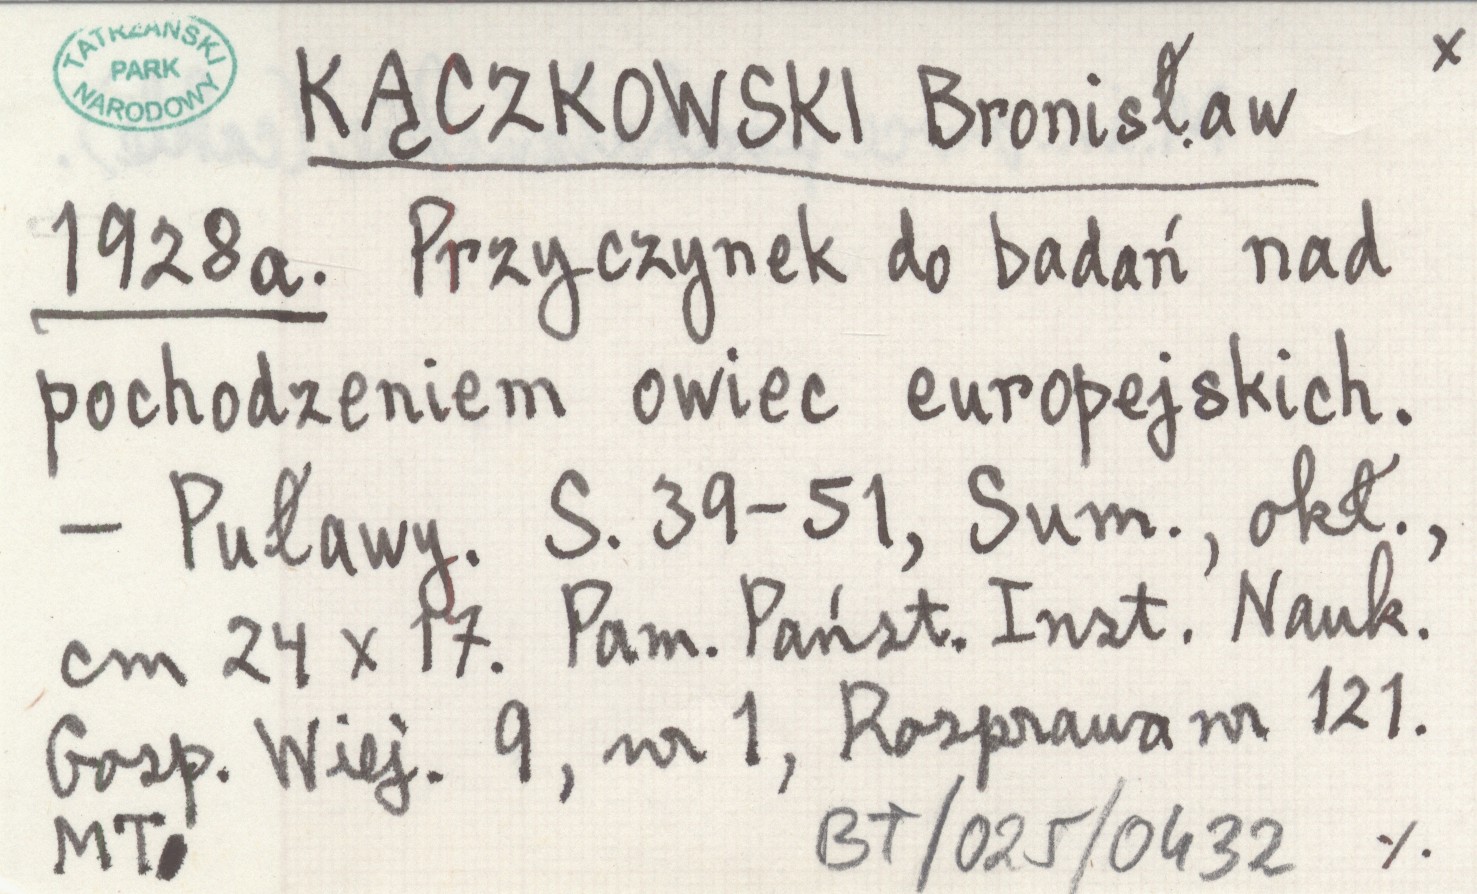 TATRZAŃSKI
PARK
NARODOWY
x
KĄCZKOWSKI Bronisław
1928a. Przyczynek do badań nad
pochodzeniem owiec europejskich.
— Puławy. S. 39-51, Sum., okł.,
cm 24 x 17. Pam. Państ. Inst. Nauk.
Gosp. Wiej. 9, nr 1, Rozprawa nr 121.
MT.
BT/025/0432 ٪